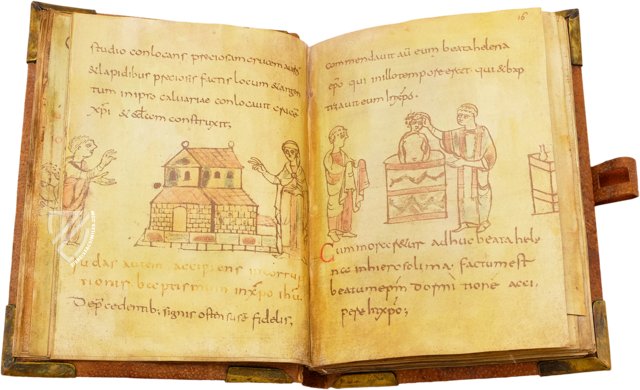 studio conlocans preciosam crucem auro
& lapidibus preciosis factis locum & argen
tum in ipro calvariae conlocavit
xpi & construxit;
Iudas autem accipiens incorrup
tionis baptismum inxpo ihu
Depcedentib; signis ostensus e fidelis;
16
commendavit au eum beata helena
epo qui illo tempore erat qui & bap
tizavit eum in xpo;
Cum moraretur adhuc beata hele
na in hierosolima; factum est
beatum epm dormitione acci
pere in xpo;